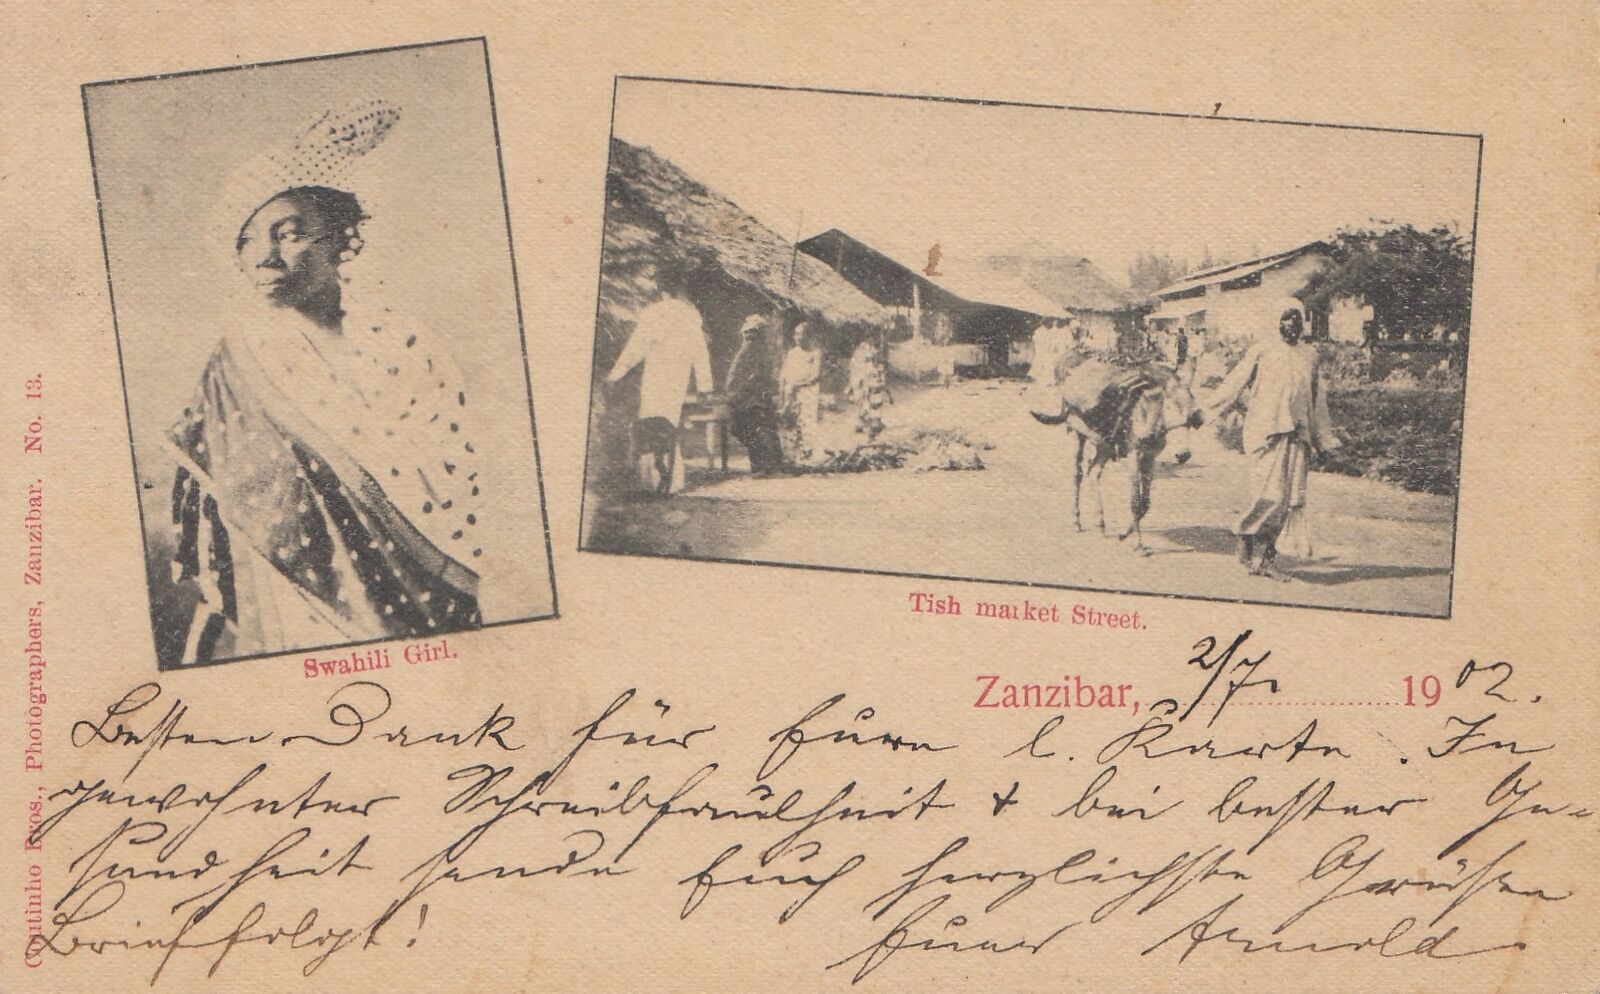 Coutinho Bros., Photographers, Zanzibar. No. 13.
Swahili Girl.
Tish market Street.
Zanzibar, 2/7. 1902.
Besten Dank für Eure l. Karte. In
gewohnter Schreibfaulheit & bei bester Ge-
sundheit sende Euch herzlichste Grüßen
Brief folgt! Euer Arnold